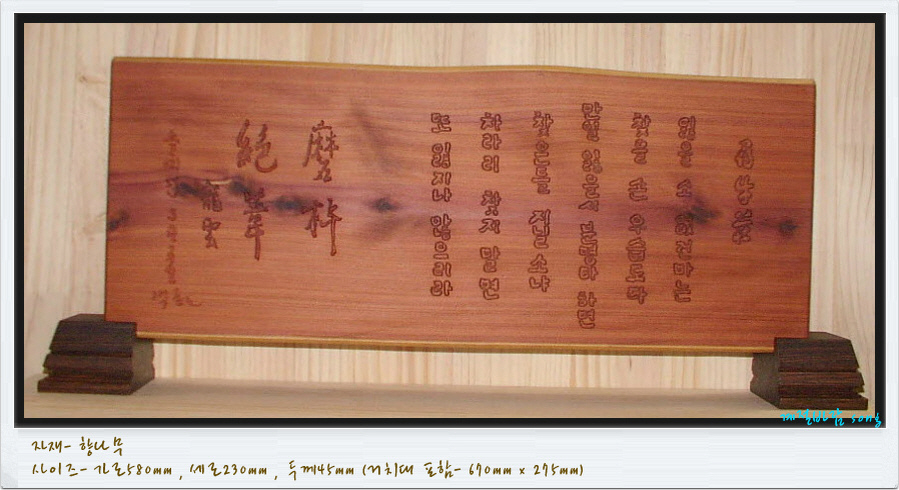 심우장
잃은 소 없건마는
찾을 손 우습도다
만일 잃을시 분명타 하면
찾은들 지닐소냐
차라리 찾지 말면
또 잃지나 않으리라
磨杵
絶
song
자재- 향나무
사이즈- 가로580mm , 세로230mm , 두께45mm (거치대 포함- 670mm x 275mm)